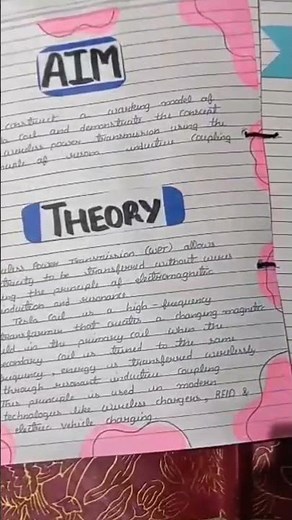 AIM
construct a working model of
coil and demonstrate the concept
wireless power transmission using the
of inductive coupling
THEORY
Power Transmission (WPT) allows
to be transferred without wires
the principle of electromagnetic
induction and resonance
Tesla Coil is a high-frequency
transformer that creates a changing magnetic
in the primary coil when the
coil is tuned to the same
frequency, energy is transferred wirelessly
through resonant inductive coupling
This principle is used in modern
technologies like wireless chargers, RFID &
electric vehicle charging